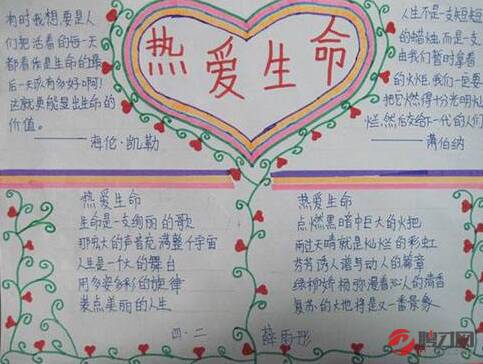 有时我想,要是人
们把活着的每一天
都看作是生命的最
后一天该有多好啊!
这就更能显出生命的
价值。
——海伦·凯勒
热爱生命
人生不是一支短短
的蜡烛,而是一支
由我们暂时拿着
的火炬,我们一定要
把它燃得十分光明灿
烂,然后交给下一代的人们
——萧伯纳
热爱生命
生命是一支绚丽的歌
那宏大的声音充满整个宇宙
人生是一个大的舞台
用多姿多彩的旋律
装点美丽的人生
热爱生命
点燃黑暗中巨大的火把
雨过天晴就是灿烂的彩虹
芬芳诱人谱写动人的篇章
绿柳娇杨弥漫着沁人的清香
复苏的大地将是又一番景象
四·二
薛雨彤